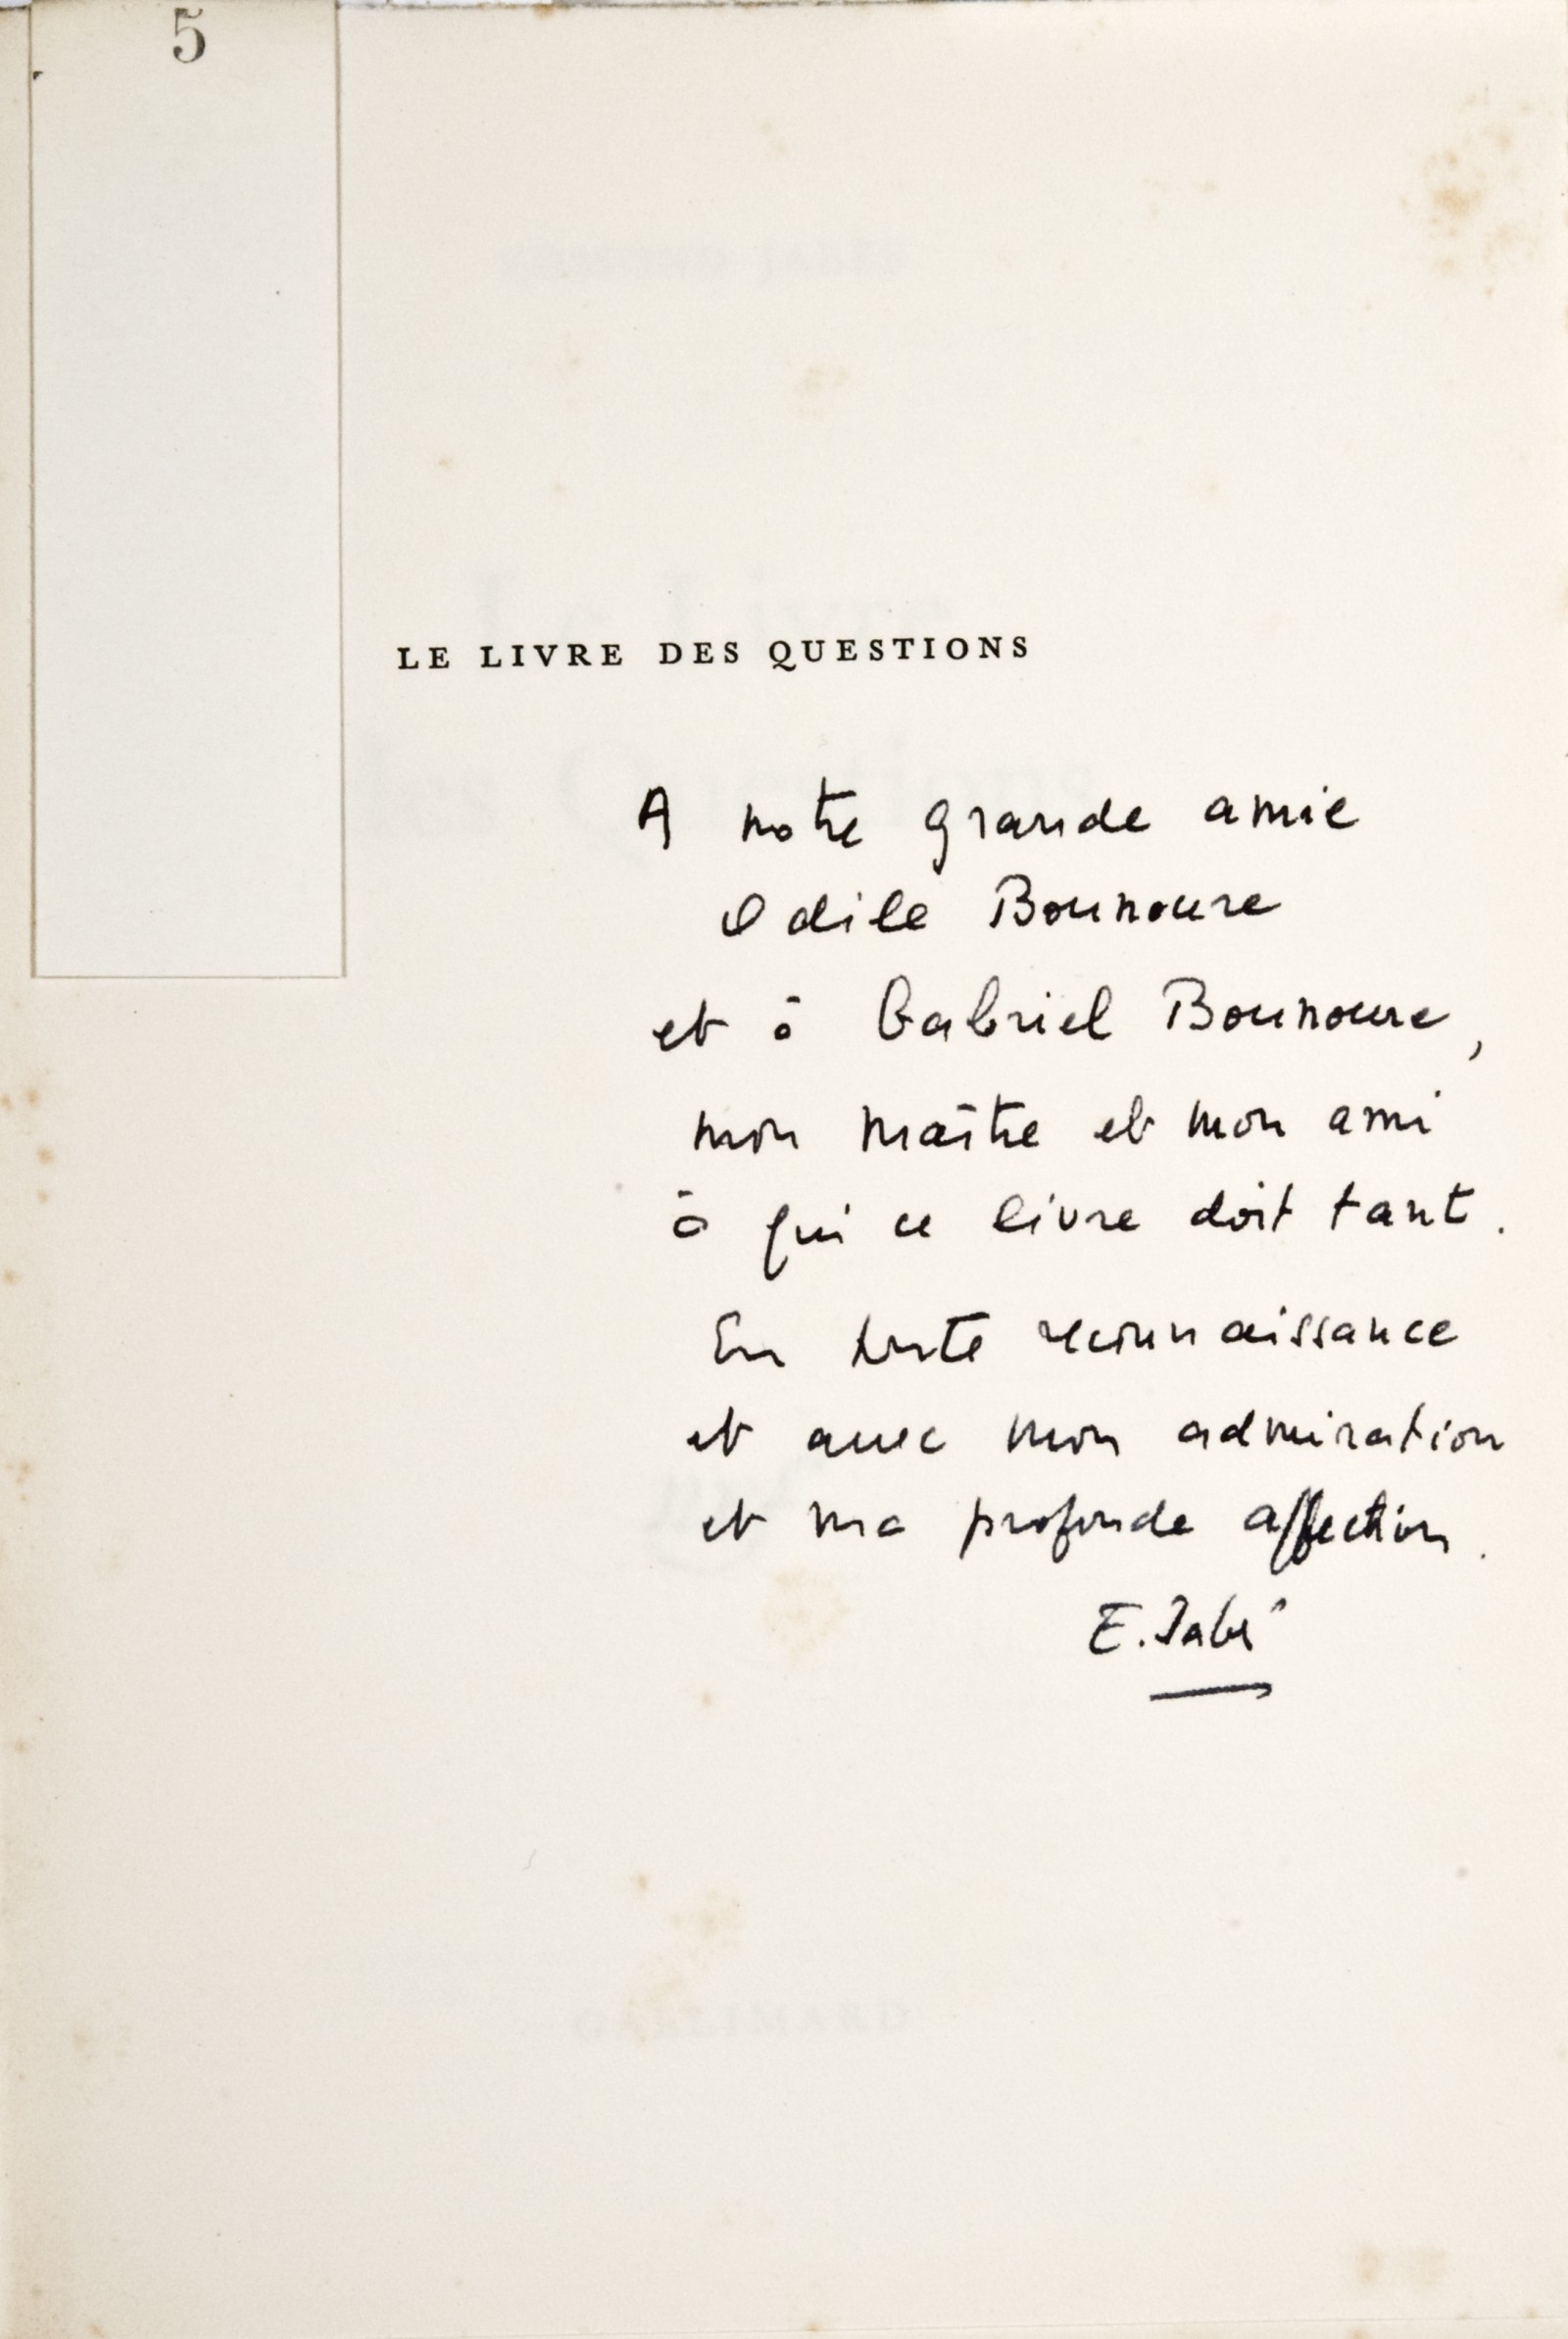 5
LE LIVRE DES QUESTIONS
A notre grande amie
Odile Bounoure
et à Gabriel Bounoure,
mon maître et mon ami
à qui ce livre doit tant.
En toute reconnaissance
et avec mon admiration
et ma profonde affection.
E. Jabès